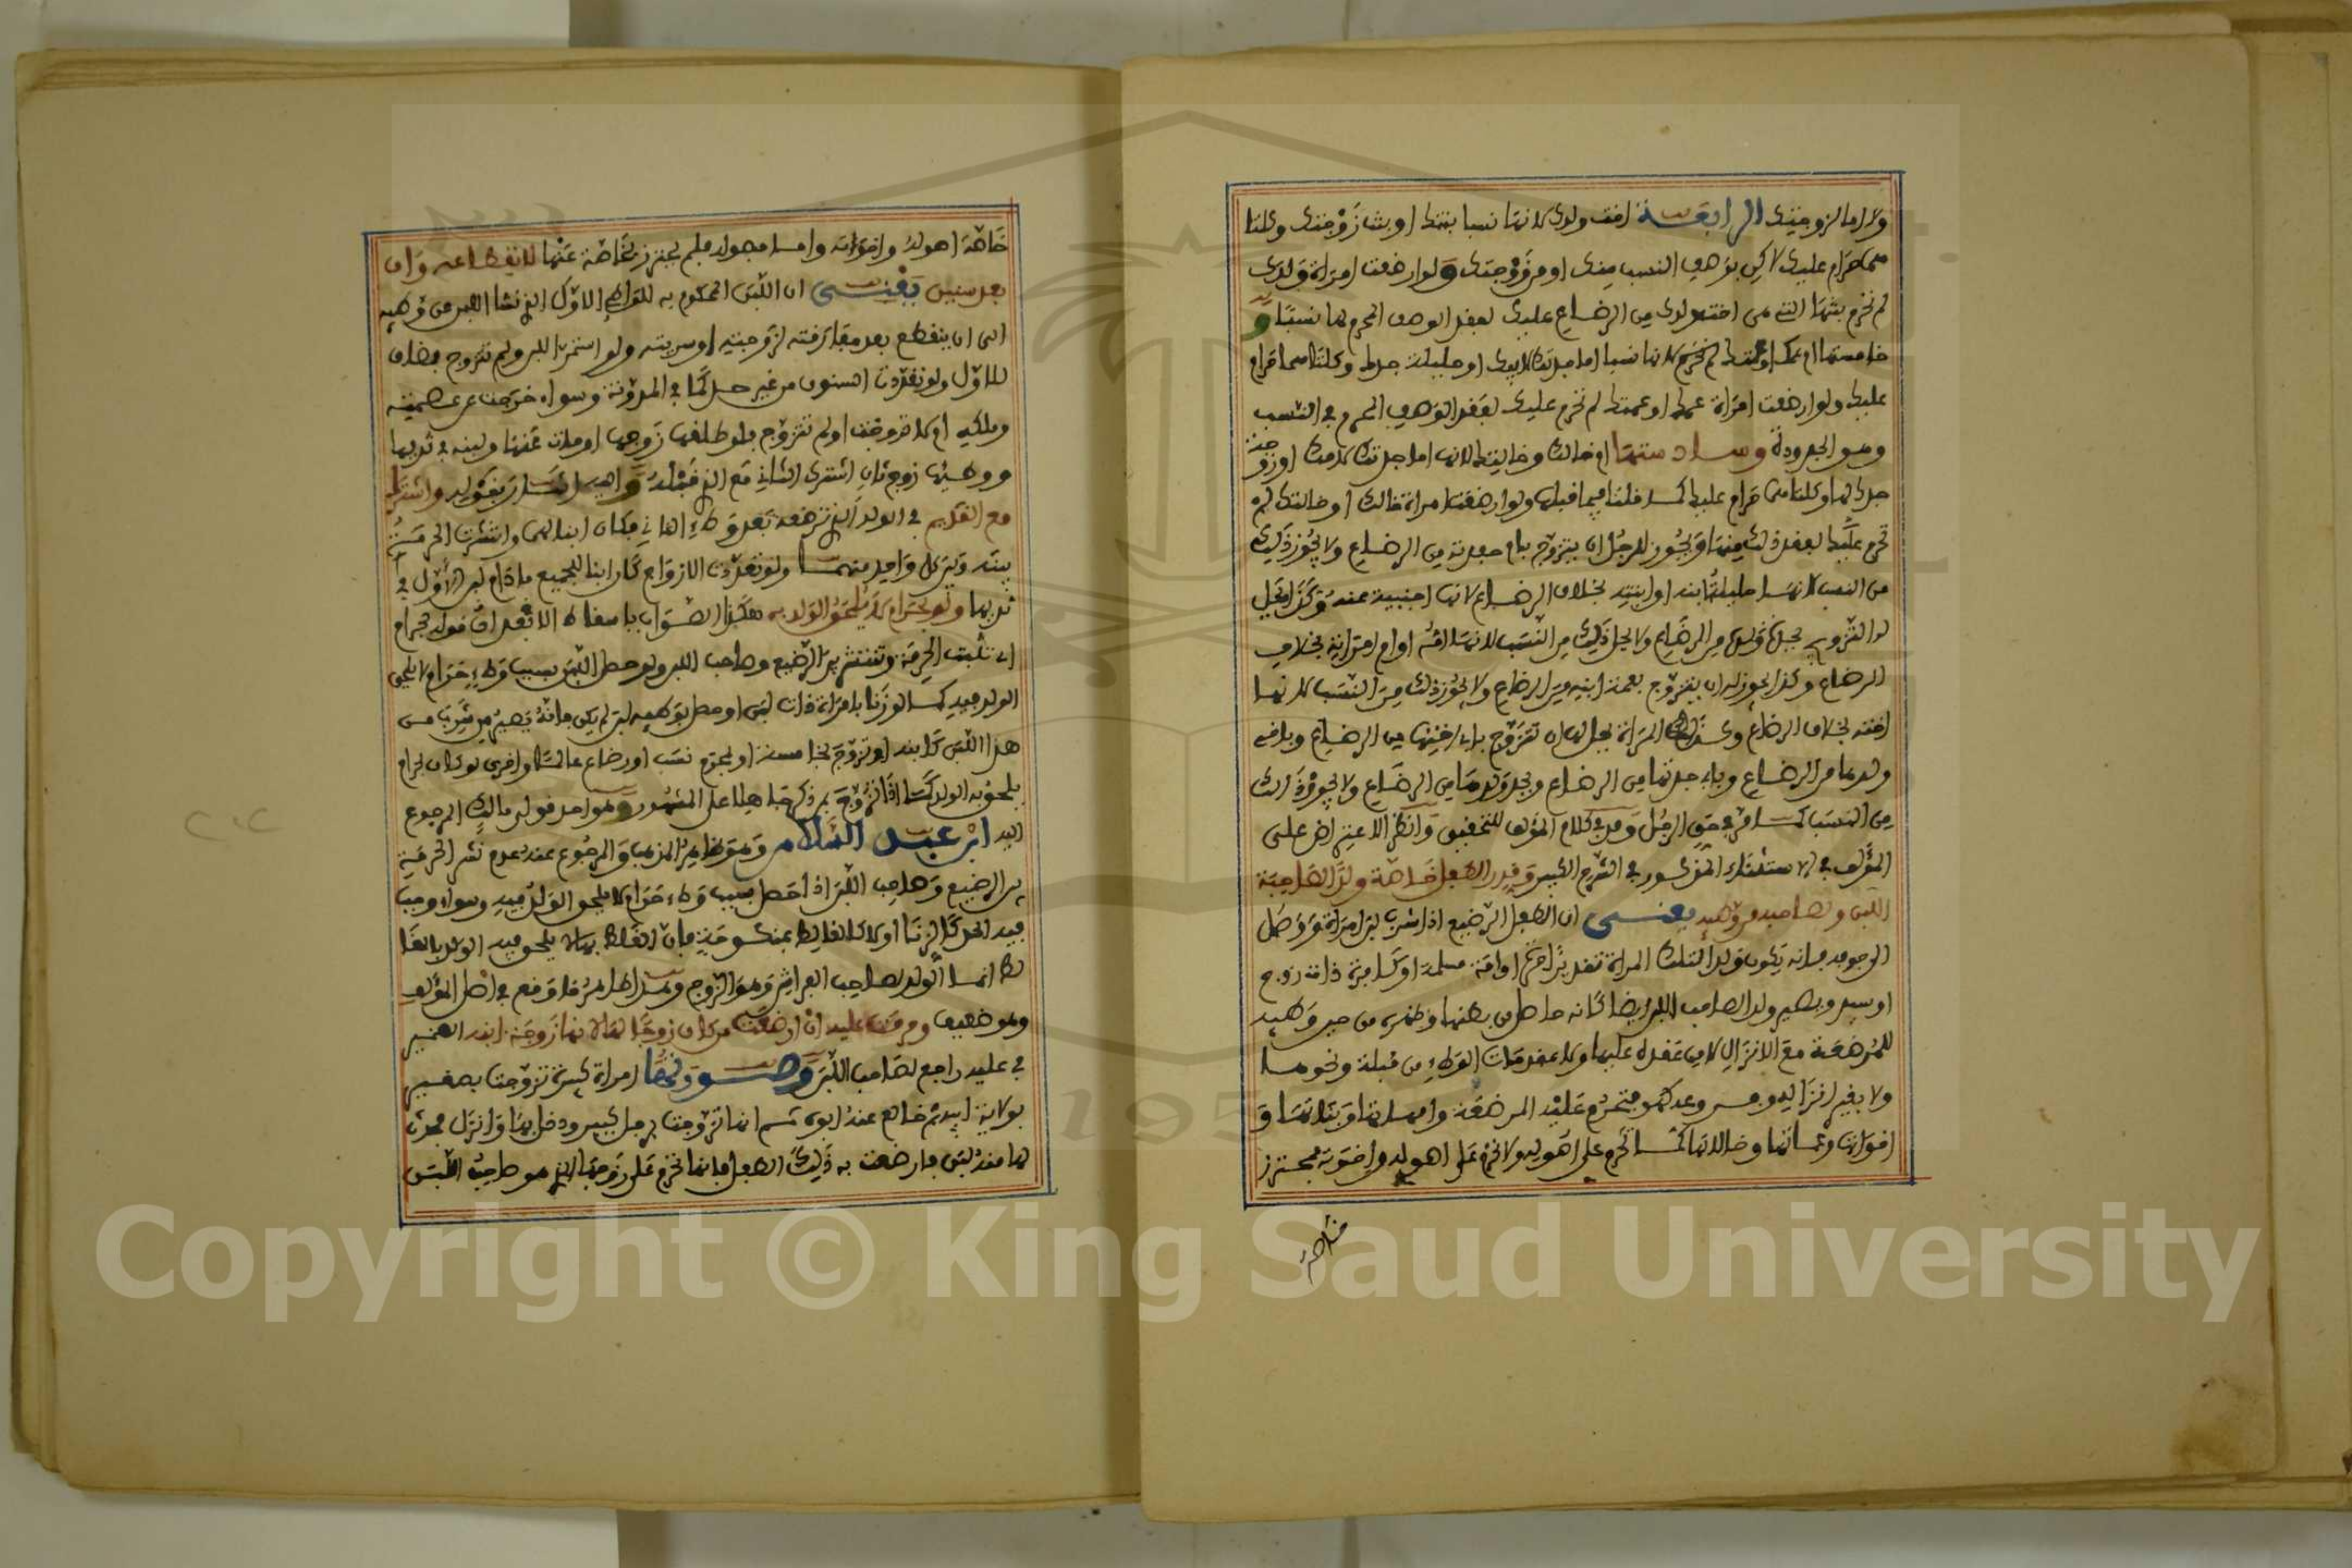 ولا اما لزوجتك الرابعة اخت ولدك لانها نسبا بنتك او بنت زوجتك وكلتا
هما حرام عليك لاكن بوصف النسب منك او من زوجتك ولو ارضعت امراة ولدك
لم تحرم بنتها التي هي اخت ولدك من الرضاع عليك لفقد الوصف المحرم لها نسبا و
خامستها ام عمك او عمتك لم تحرم لانها نسبا اما جدتك لابيك او حليلة جدك وكلتاهما حرام
عليك ولو ارضعت امراة عمك او عمتك لم تحرم عليك لفقد الوصف المحرم في النسب
وهو الجدودة وسادستها ام خالك وخالتك لانها اما جدتك لامك او زوجة
جدك لها وكلتاهما حرام عليك كما قلنا فيما قبلها ولو ارضعت امراة خالك او خالتك لم
تحرم عليك لفقد ذلك منها ويجوز للرجل ان يتزوج بام حفدته من الرضاع ولا يجوز ذلك
من النسب لانها حليلة ابنه او ابنته بخلاف الرضاع لانها اجنبية عنه وكذا يحل
له التزويج بجدة ولده من الرضاع ولا يحل ذلك من النسب لانها امه او ام امراته بخلاف
الرضاع وكذا يجوز له ان يتزوج بعمة ابنه من الرضاع ولا يجوز ذلك من النسب لانها
اخته بخلاف الرضاع وكذلك المراة يحل لها ان تتزوج باب اخيها من الرضاع وباخي
ولدها من الرضاع وباب حفدتها من الرضاع وبجد ولدها من الرضاع ولا يجوز ذلك
من النسب كما مر في حق الرجل وقد في كلام المؤلف للتحقيق وانظر الاعتراض على
المؤلف في الاستثناء المذكور في الشرح الكبير وقدر الطفل خاصة ولدا لصاحبة
اللبن ولصاحبه من وطئه يعني ان الطفل الرضيع اذا شرب لبن امراة
الوجوه فانه يكون ولدا لتلك المراة تقديرا حرة او امة مسلمة او كتابية ذات زوج
او سيد ويصير ولدا لصاحب اللبن ايضا كانه حاصل من بطنها وظهره من حين وطئه
للمرضعة مع الانزال لا من عقده عليها ولا مقدمات الوطء من قبلة ونحوها
ولا بغير انزال فيحرم عليه المرضعة وامهاتها وبناتها و
اخواتها وعماتها وخالاتها كما تحرم على اصوله ولا تحرم على اصوله واخوته فمحترز
خاصة
خاصة اصوله واخواته واما فصوله فلم يحترز بخاصة عنها لانقطاعه وان
بعد سنين يعني ان اللبن المحكوم به للواطئ الاول الذي نشا اللبن من وطئه
الى ان ينقطع بعد مفارقته لزوجته او سريته ولو استمر اللبن ولم تتزوج فيضاف
للاول ولو تعددت السنون من غير حد كما في المدونة وسواء خرجت عن عصمته
وملكه ام لا تزوجت او لم تتزوج فلو طلقها زوجها او مات عنها ولبنه في ثديها
ووطئها زوج ثان اشترك الثاني مع الذي قبله واليه اشار بقوله واشترك
مع القديم في الولد الذي ترضعه بعد وطء الثاني فكان ابنا لهما وانتشرت الحرمة
بينه وبين كل واحد منهما ولو تعددت الازواج كان ابنا للجميع ما دام لبن الاول في
ثديها ولو بحرام لا يلحق الولد به هكذا الصواب باسقاط الا فقوله بحرام
اي تثبت الحرمة وتنتشر بين الرضيع وصاحب اللبن ولو حصل اللبن بسبب وطء حرام لا يلحق
الولد فيه كما لو زنا بامراة ذات لبن او حصل بوطئه لبن لم يكن فانه يصير من شرب من
هذا اللبن كابنه او تزوج بخامسة او بمحرم نسب او رضاع عالما واخرى لو كان بحرام
يلحق به الولد كما اذا تزوج بمن ذكر جاهلا على المشهور وهو احد قولي مالك المرجوع
اليه ابن عبد السلام وهو ظاهر المذهب والمرجوع عنه عدم نشر الحرمة
بين الرضيع وصاحب اللبن اذا حصل بسبب وطء حرام لا يلحق الولد فيه وسواء وجب
فيه الحد كالزنا او لا
لصاحب الفراش وهو الزوج
وهو ضعيف وحرمت عليه ان ارضعت من كان زوجا لها لانها زوجة ابنه الضمير
في عليه راجع لصاحب اللبن وصورتها امراة كبيرة تزوجت بصغير
بولاية ابيه ثم خالع عنه ابوه ثم انها تزوجت برجل كبير ودخل بها وانزل فحدث
لها منه لبن فارضعت به ذلك الطفل فانها تحرم على زوجها الذي هو صاحب اللبن
Copyright © King Saud University
195